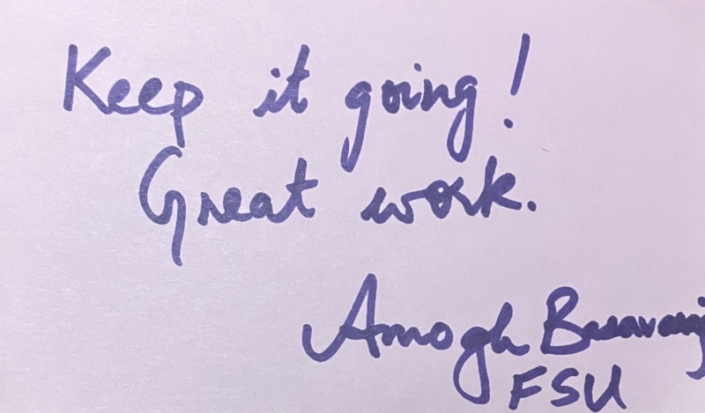 Keep it going!
Great work.
Amogh
FSU